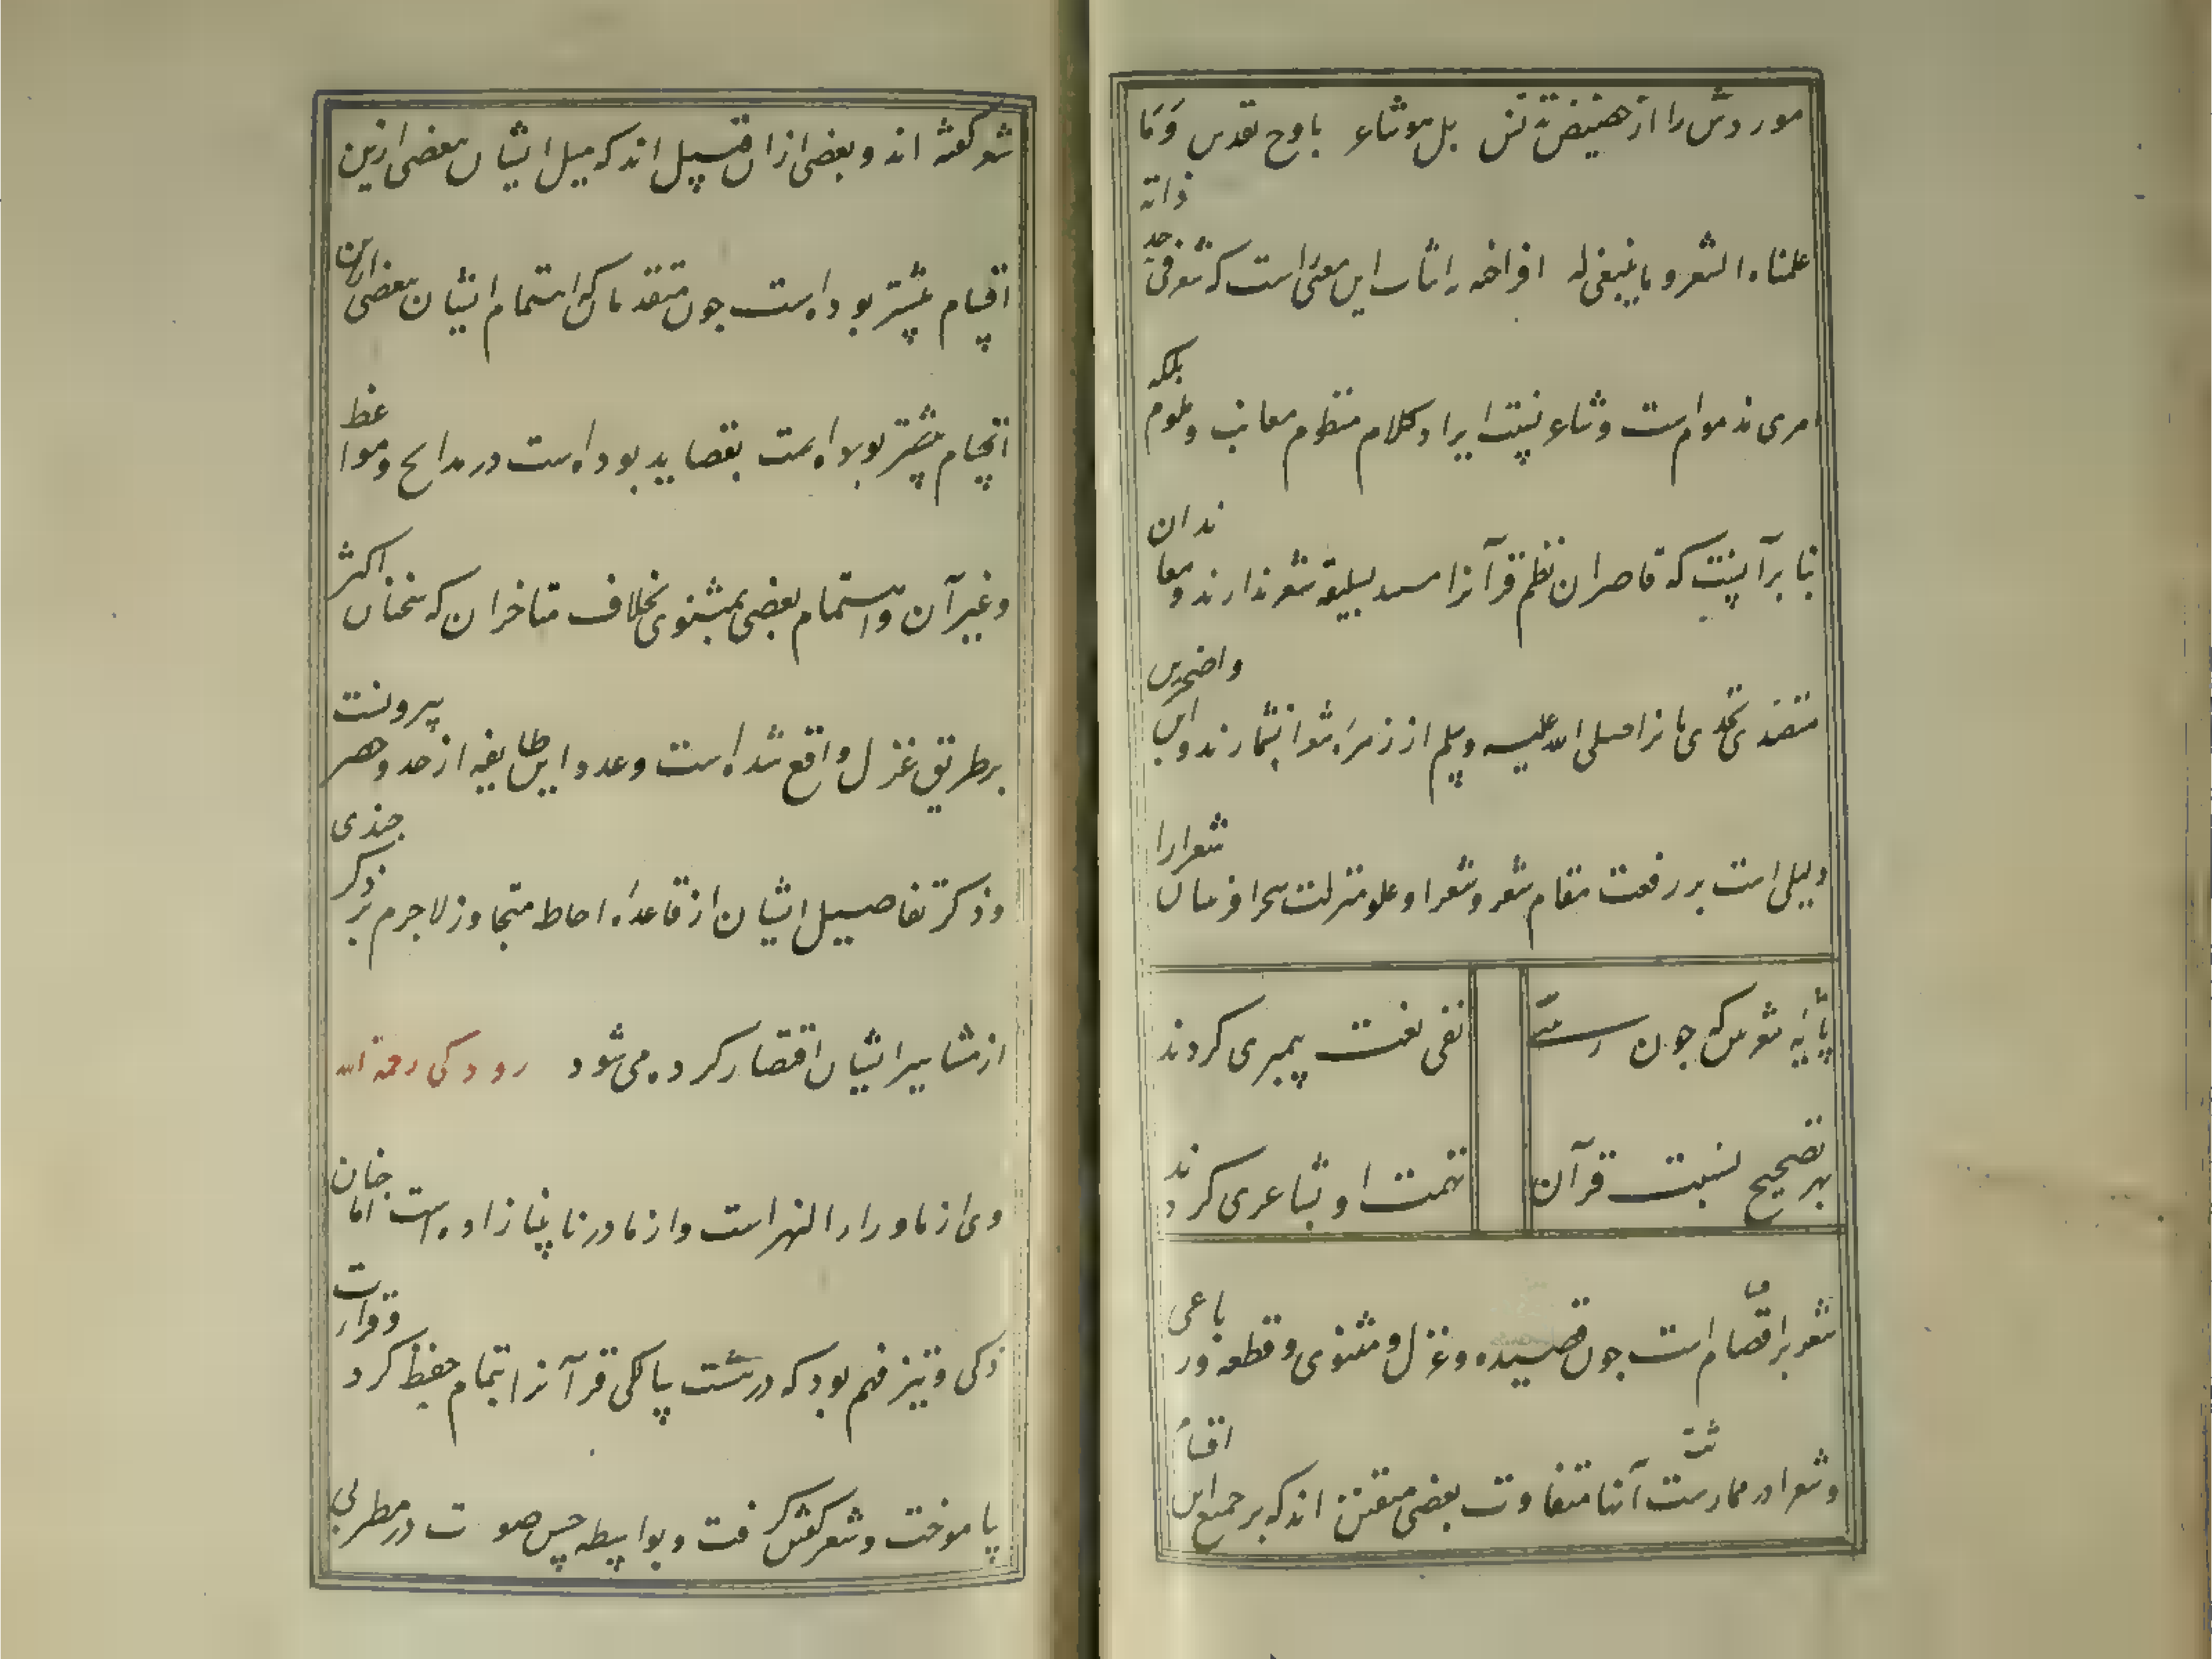 موردش را از حضیض تدنس بل هو شاعر باوج تقدس وَمَا
علمناه الشعر و ما ینبغی له افراخته اثبات این معنی راست که شعر فی حد ذاته
امری مذموم است و شاعر بنسبت ایراد کلام منظوم معاتب و ملوم بلکه
بنا بر آنست که قاصران نظم قرآنرا مستند بسلیقه شعر ندارند و معاندان
متصدی تحدی بآنرا صلی الله علیه وسلم از زمره شعرا نشمارند و این واضحترین
دلیلی است بر رفعت مقام شعر و شعرا و علو منزلت سحرافرینان شعر را
پایه شعر بین که چون
نفی نعت پیمبری کردند
بهر تصحیح نسبت قرآن
تهمت او بشاعری کردند
شعر بر اقسام است چون قصیده و غزل و مثنوی و قطعه و رباعی
و شعرا در ممارست آنها متفاوت بعضی متفنن اند که بر جمیع این اقسام
شعر گفته اند و بعضی از ان قبیل اند که میل ایشان ببعضی ازین
اقسام بیشتر بوده است چون متقدمان که اهتمام ایشان ببعضی ازین
اقسام بیشتر بوده است بقصاید بوده است در مدایح و مواعظ
و غیر آن و اهتمام بعضی بمثنوی بخلاف متاخران که سخنان اکثر
بر طریق غزل واقع شده است و عدد این طایفه از حد و حصر بیرونست
و ذکر تفاصیل ایشان از قاعده احاطه متجاوز لاجرم بر ذکر چندی
از مشاهیر ایشان اقتصار کرده می شود رودکی رحمة الله
وی از ماوراء النهر است و از مادر نابینا زاده است اما چنان
ذکی و تیز فهم بود که در هشت سالگی قرآنرا بتمام حفظ کرد و قرات
بیاموخت و شعر گفتن گرفت و بواسطه حسن صوت در مطربی